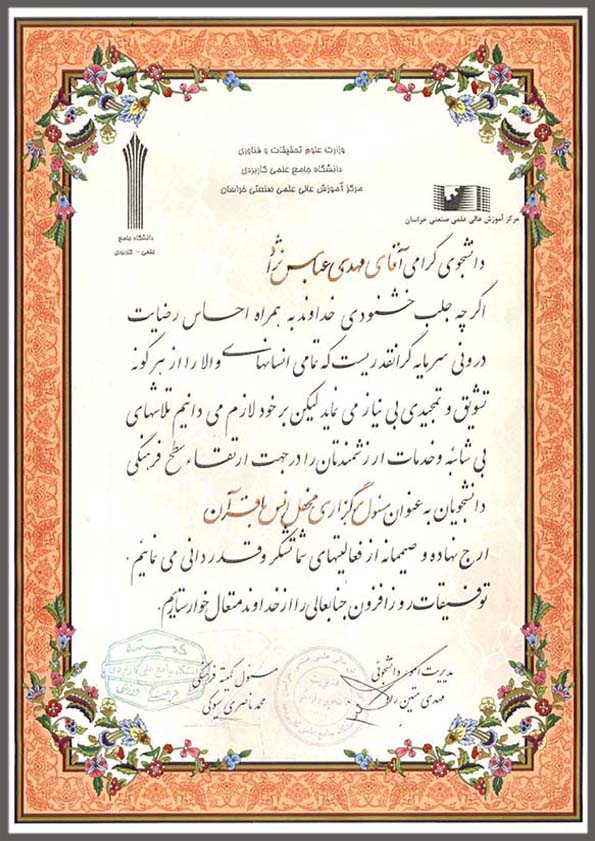 وزارت علوم تحقیقات و فناوری
دانشگاه جامع علمی کاربردی
مرکز آموزش عالی علمی صنعتی خراسان
دانشگاه جامع
علمی - کاربردی
مرکز آموزش عالی علمی صنعتی خراسان
دانشجوی گرامی آقای مهدی عباس نژاد
اگر چه جلب خشنودی خداوند به همراه احساس رضایت
درونی سرمایه گرانقدریست که تمامی انسانهای والا را از هر گونه
تشویق و تمجیدی بی نیاز می نماید لیکن بر خود لازم می دانیم تلاشهای
بی شائبه و خدمات ارزشمندتان را در جهت ارتقاء سطح فرهنگی
دانشجویان به عنوان مسئول برگزاری محفل انس با قرآن
ارج نهاده و صمیمانه از فعالیتهای شما تشکر و قدردانی می نمائیم.
توفیقات روزافزون جنابعالی را از خداوند متعال خواستاریم.
مدیریت امور دانشجوئی
مهدی متین
مسئول کمیته فرهنگی
محمد ناصری
کمیته
دانشگاه جامع علمی کاربردی
ورزشی